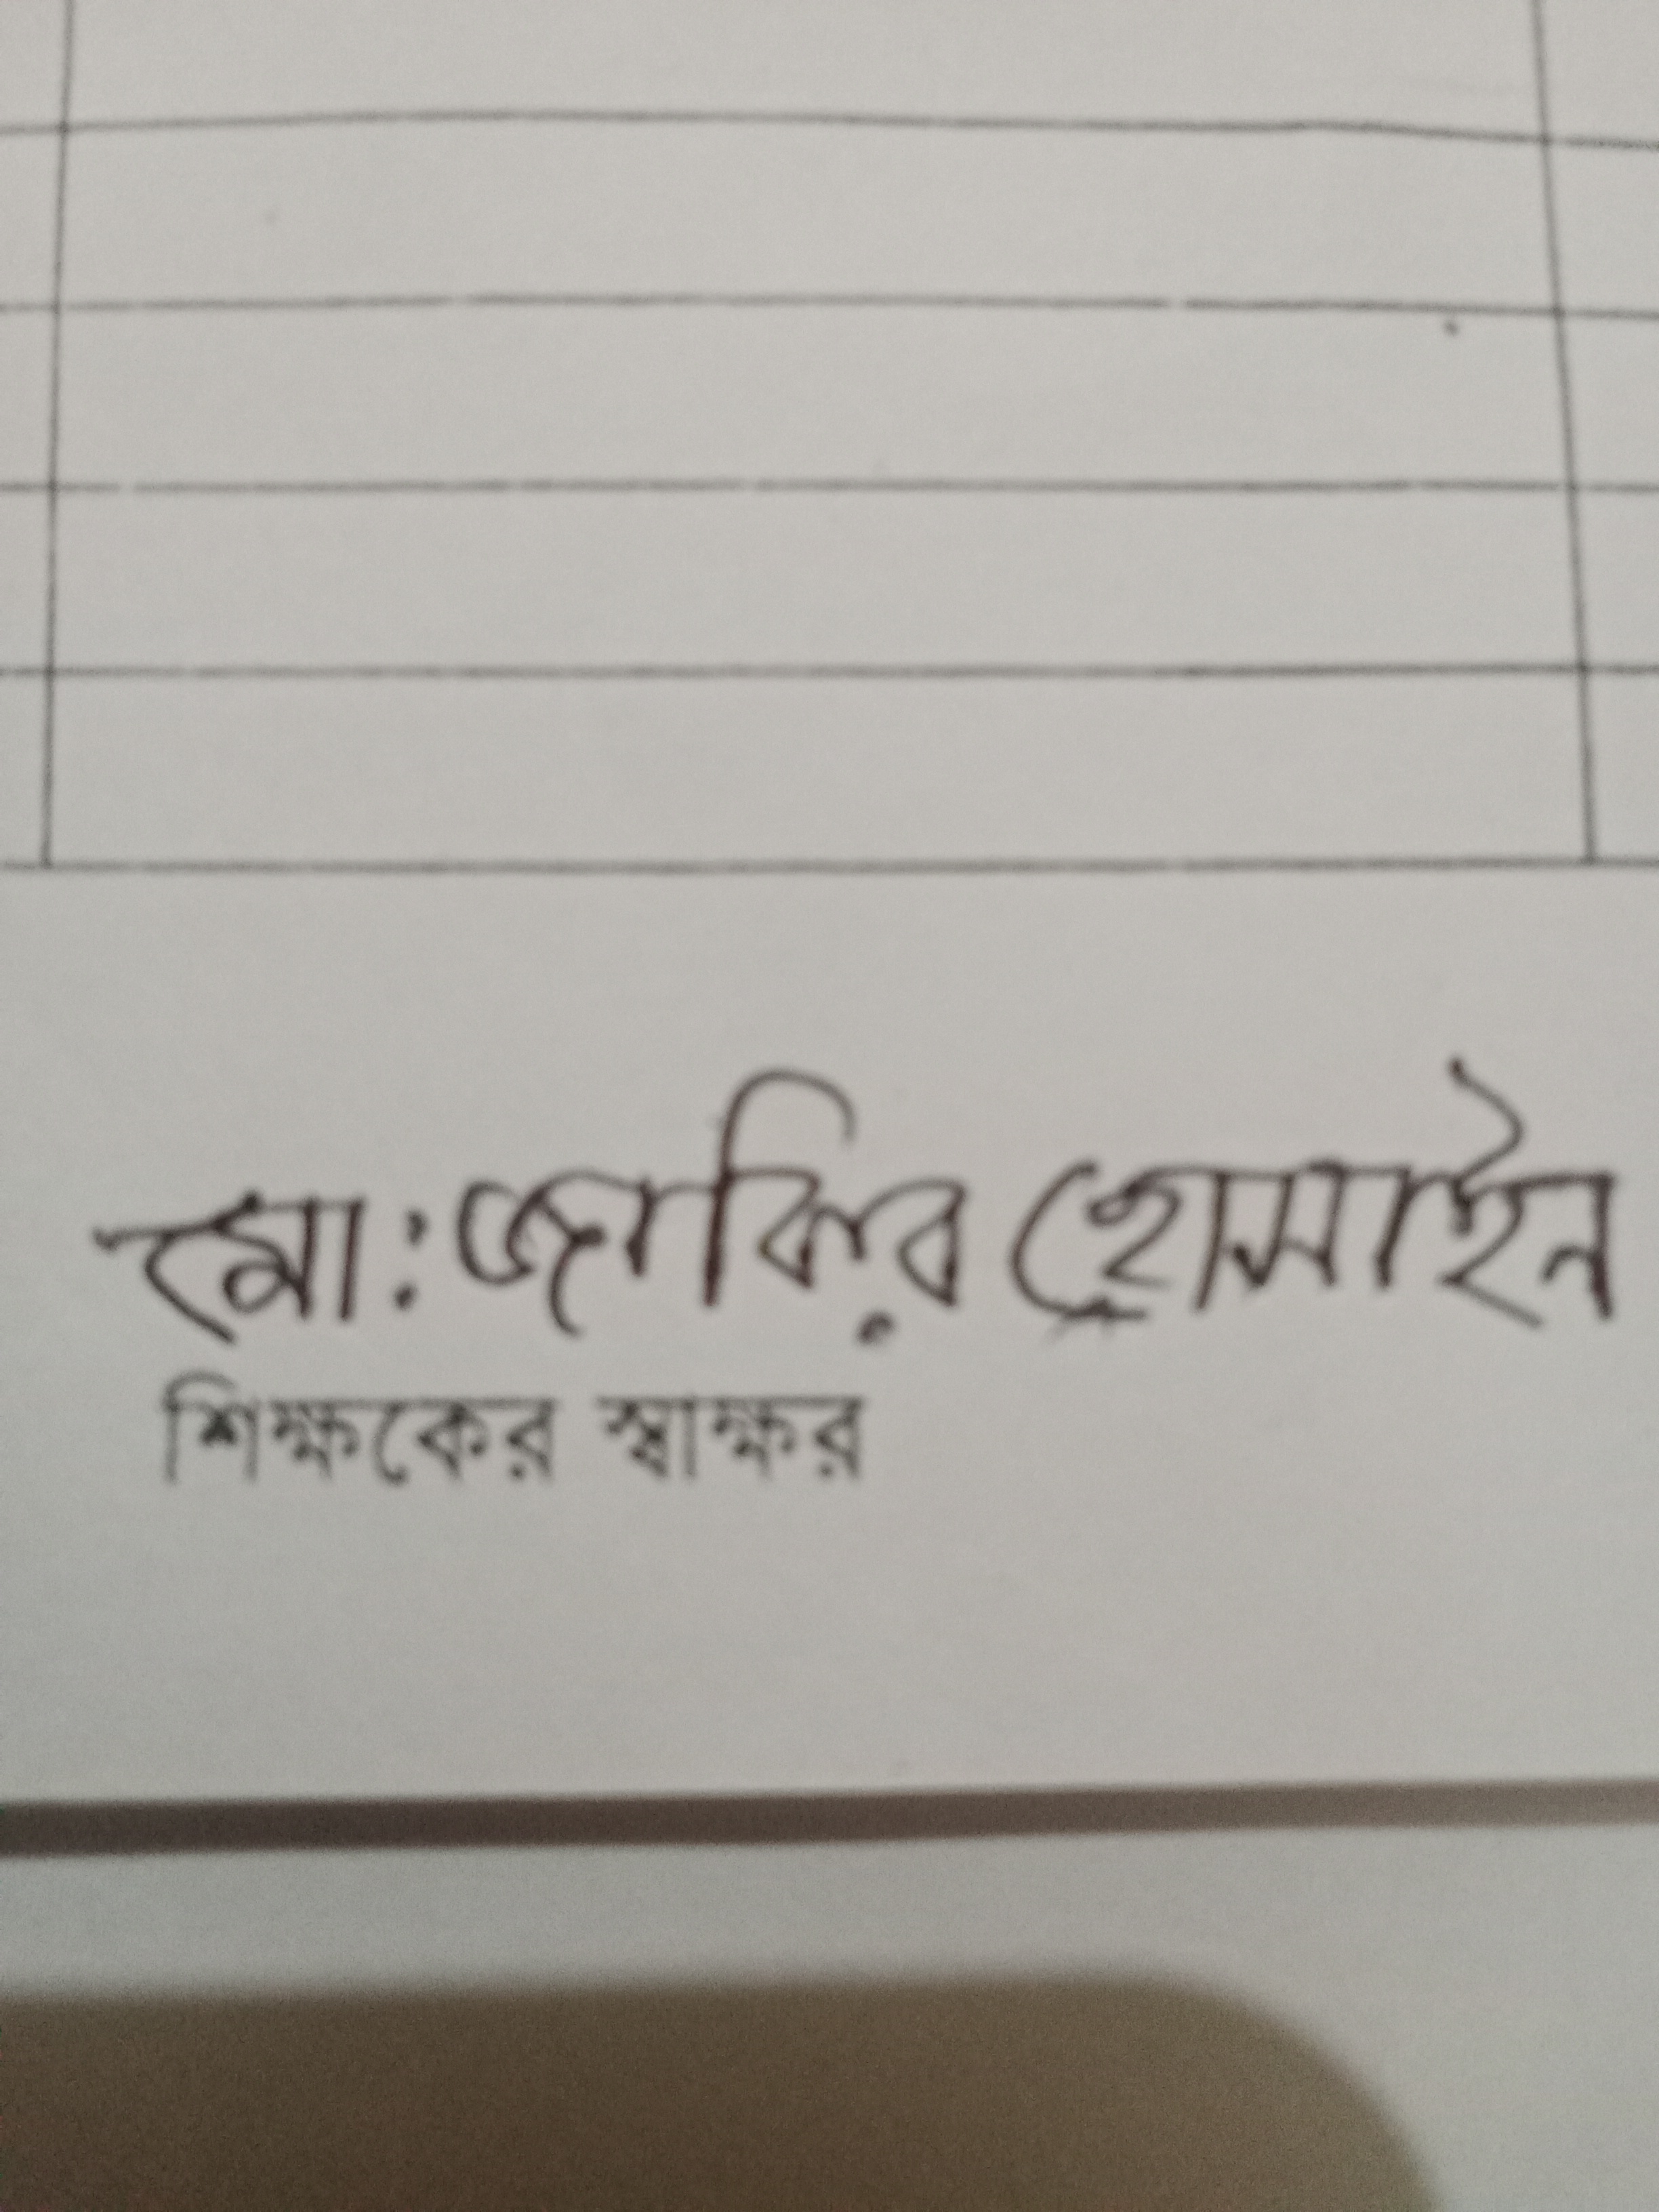 মো: জাকির হোসাইন
শিক্ষকের স্বাক্ষর